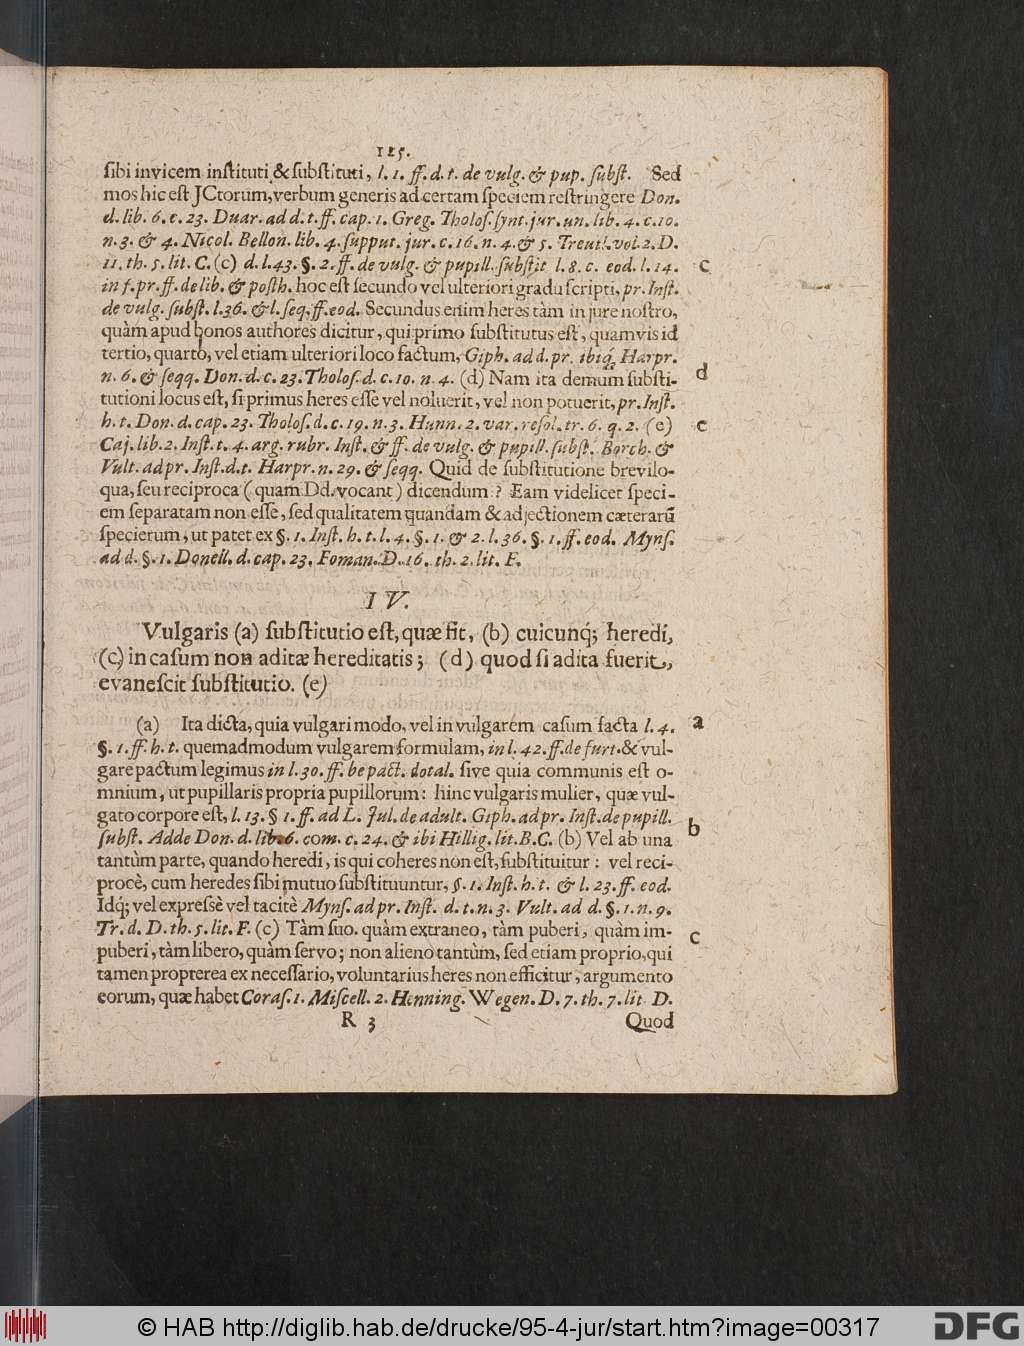 125.
sibi invicem instituti & substituti, l. 1. ff. d. t. de vulg. & pup. subst. Sed
mos hic est JCtorum, verbum generis ad certam speciem restringere Don.
d. lib. 6. c. 23. Duar. ad d. t. ff. cap. 1. Greg. Tholos. synt. jur. un. lib. 4. c. 10.
n. 3. & 4. Nicol. Bellon. lib. 4. supput. jur. c. 16. n. 4. & 5. Treutl. vol. 2. D.
11. th. 5. lit. C. (c) d. l. 43. §. 2. ff. de vulg. & pupill. substit l. 8. c. eod. l. 14. c
in f. pr. ff. de lib. & posth. hoc est secundo vel ulteriori gradu scripti, pr. Inst.
de vulg. subst. l. 36. & l. seq. ff. eod. Secundus enim heres tàm in jure nostro,
quàm apud bonos authores dicitur, qui primo substitutus est, quamvis id
tertio, quarto, vel etiam ulteriori loco factum, Giph. ad d. pr. ibiq; Harpr.
n. 6. & seqq. Don. d. c. 23. Tholos. d. c. 10. n. 4. (d) Nam ita demum substi- d
tutioni locus est, si primus heres esse vel noluerit, vel non potuerit, pr. Inst.
h. t. Don. d. cap. 23. Tholos. d. c. 19. n. 3. Hunn. 2. var. resol. tr. 6. q. 2. (e) e
Caj. lib. 2. Inst. t. 4. arg. rubr. Inst. & ff. de vulg. & pupill. subst. Borch. &
Vult. ad pr. Inst. d. t. Harpr. n. 29. & seqq. Quid de substitutione brevilo-
qua, seu reciproca (quam Dd. vocant) dicendum? Eam videlicet speci-
em separatam non esse, sed qualitatem quandam & adjectionem cæterarū
specierum, ut patet ex §. 1. Inst. h. t. l. 4. §. 1. & 2. l. 36. §. 1. ff. eod. Myns.
ad d. §. 1. Donell. d. cap. 23. Foman. D. 16. th. 2. lit. F.
IV.
Vulgaris (a) substitutio est, quæ fit, (b) cuicunq; heredi,
(c) in casum non aditæ hereditatis; (d) quod si adita fuerit,
evanescit substitutio. (e)
(a) Ita dicta, quia vulgari modo, vel in vulgarem casum facta l. 4. a
§. 1. ff. h. t. quemadmodum vulgarem formulam, in l. 42. ff. de furt. & vul-
gare pactum legimus in l. 30. ff. be pact. dotal. sive quia communis est o-
mnium, ut pupillaris propria pupillorum: hinc vulgaris mulier, quæ vul-
gato corpore est, l. 13. § 1. ff. ad L. Jul. de adult. Giph. ad pr. Inst. de pupill.
subst. Adde Don. d. lib. 6. com. c. 24. & ibi Hillig. lit. B. C. (b) Vel ab una b
tantùm parte, quando heredi, is qui coheres non est, substituitur: vel reci-
procè, cum heredes sibi mutuo substituuntur, §. 1. Inst. h. t. & l. 23. ff. eod.
Idq; vel expressè vel tacitè Myns. ad pr. Inst. d. t. n. 3. Vult. ad d. §. 1. n. 9.
Tr. d. D. th. 5. lit. F. (c) Tàm suo. quàm extraneo, tàm puberi, quàm im- c
puberi, tàm libero, quàm servo; non alieno tantùm, sed etiam proprio, qui
tamen propterea ex necessario, voluntarius heres non efficitur, argumento
eorum, quæ habet Coras. 1. Miscell. 2. Henning. Wegen. D. 7. th. 7. lit D.
R 3 Quod
© HAB http://diglib.hab.de/drucke/95-4-jur/start.htm?image=00317
DFG